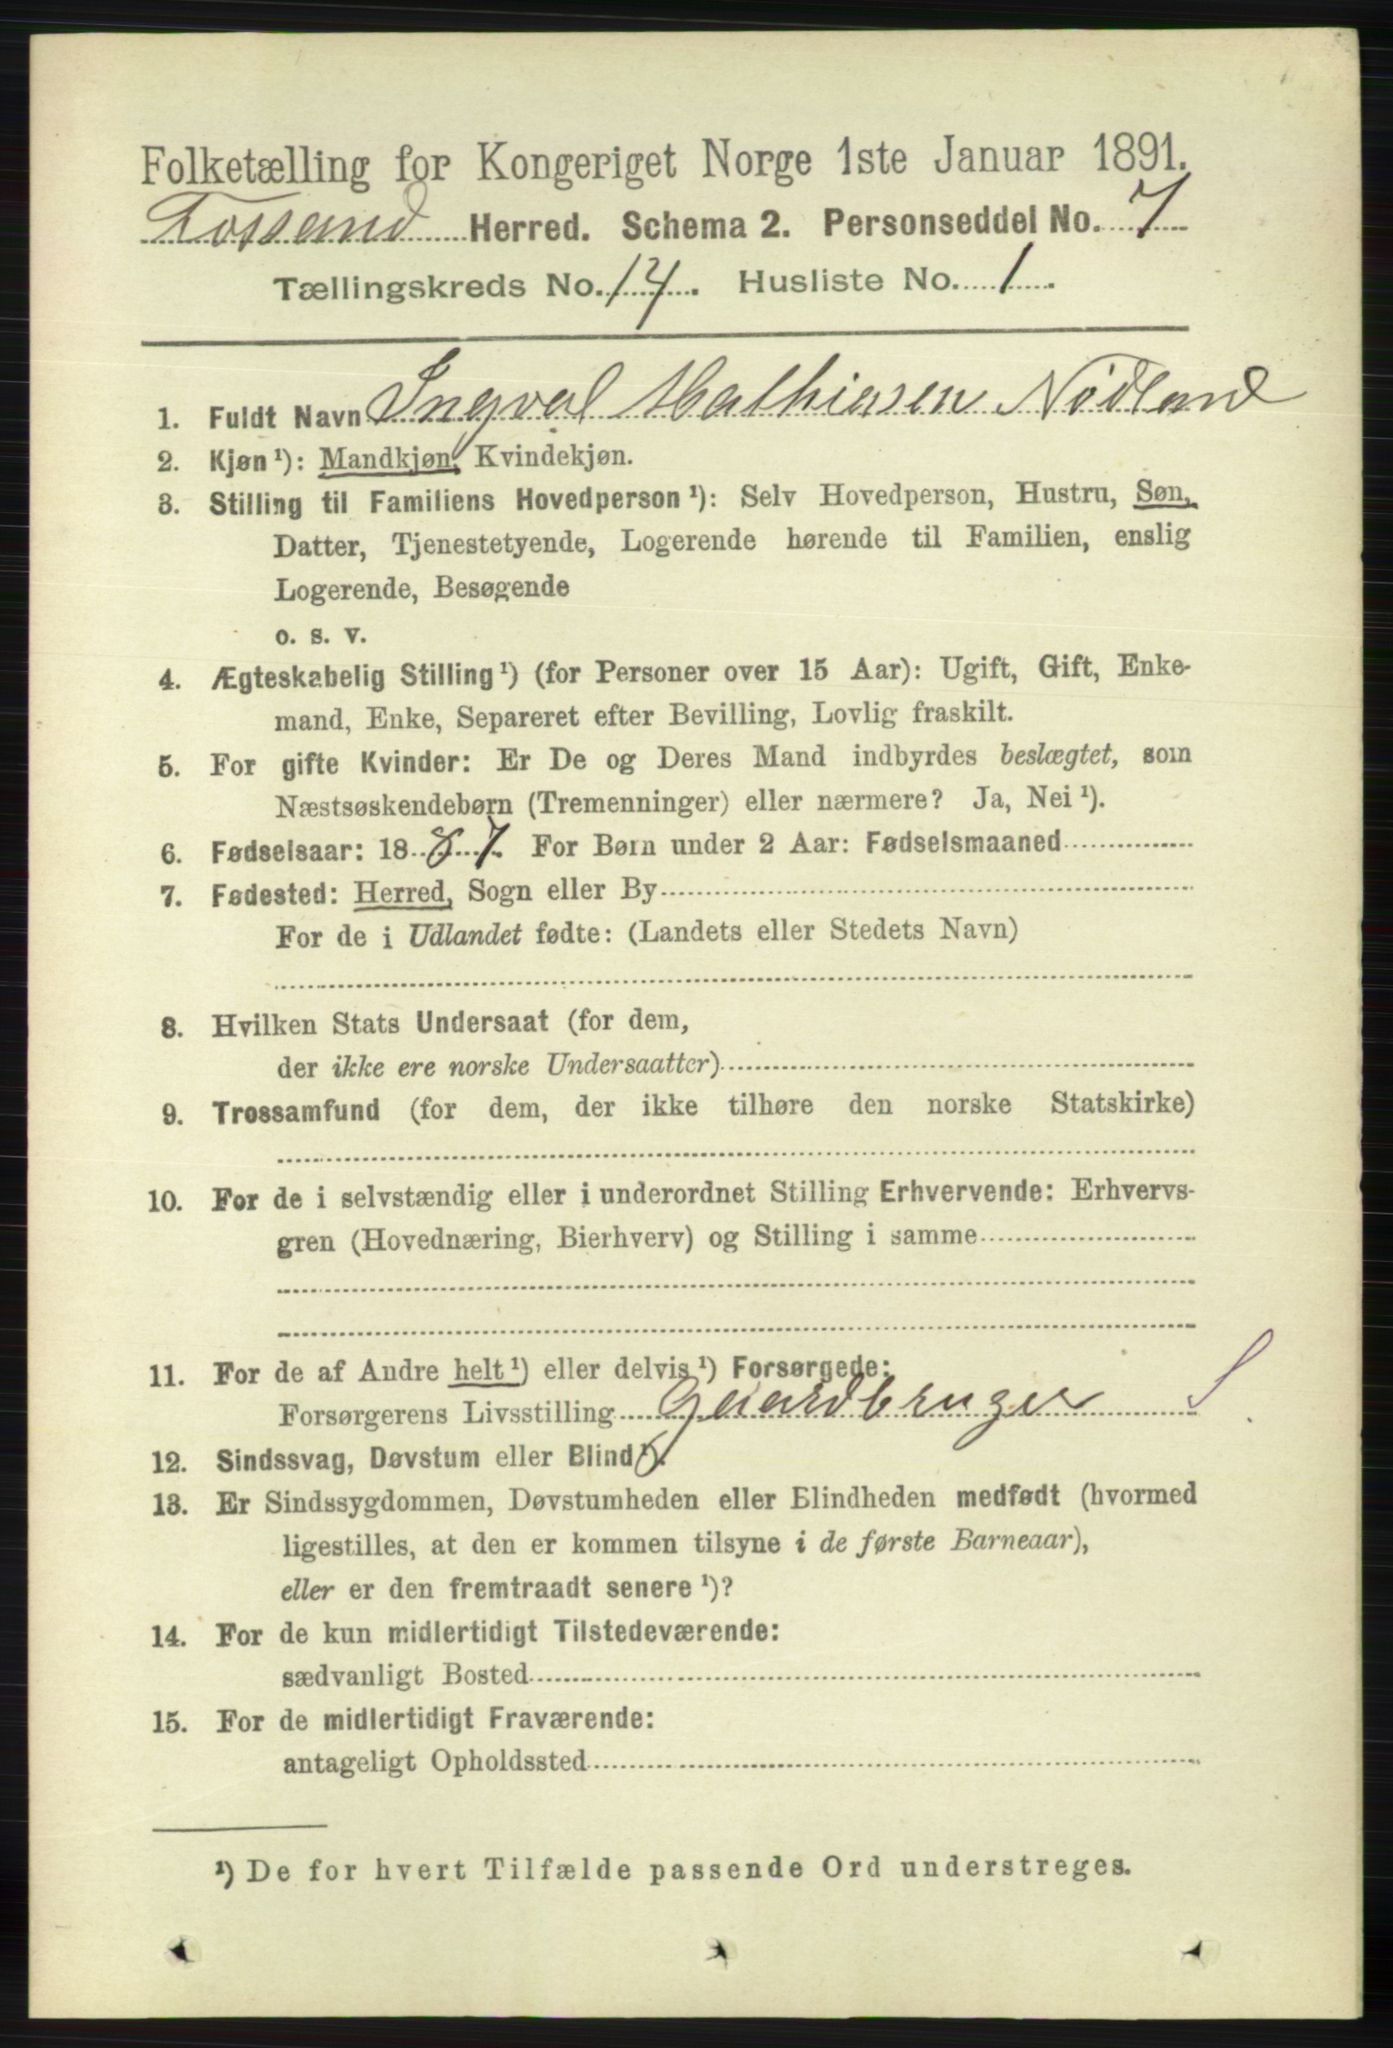 Folketælling for Kongeriget Norge 1ste Januar 1891.
Fossand Herred. Schema 2. Personseddel No. 7
Tællingskreds No. 14. Husliste No. 1.
1. Fuldt Navn Ingval Mathiasen Nödland
2. Kjøn¹): Mandkjøn, Kvindekjøn.
3. Stilling til Familiens Hovedperson¹): Selv Hovedperson, Hustru, Søn,
Datter, Tjenestetyende, Logerende hørende til Familien, enslig
Logerende, Besøgende
o. s. v.
4. Ægteskabelig Stilling¹) (for Personer over 15 Aar): Ugift, Gift, Enke-
mand, Enke, Separeret efter Bevilling, Lovlig fraskilt.
5. For gifte Kvinder: Er De og Deres Mand indbyrdes beslægtet, som
Næstsøskendebørn (Tremenninger) eller nærmere? Ja, Nei¹).
6. Fødselsaar: 1887. For Børn under 2 Aar: Fødselsmaaned
7. Fødested: Herred, Sogn eller By
For de i Udlandet fødte: (Landets eller Stedets Navn)
8. Hvilken Stats Undersaat (for dem,
der ikke ere norske Undersaatter)
9. Trossamfund (for dem, der ikke tilhøre den norske Statskirke)
10. For de i selvstændig eller i underordnet Stilling Erhvervende: Erhvervs-
gren (Hovednæring, Bierhverv) og Stilling i samme
11. For de af Andre helt¹) eller delvis¹) Forsørgede:
Forsørgerens Livsstilling Gaardbruger S
12. Sindssvag, Døvstum eller Blind¹).
13. Er Sindssygdommen, Døvstumheden eller Blindheden medfødt (hvormed
ligestilles, at den er kommen tilsyne i de første Barneaar),
eller er den fremtraadt senere¹)?
14. For de kun midlertidigt Tilstedeværende:
sædvanligt Bosted
15. For de midlertidigt Fraværende:
antageligt Opholdssted
¹) De for hvert Tilfælde passende Ord understreges.